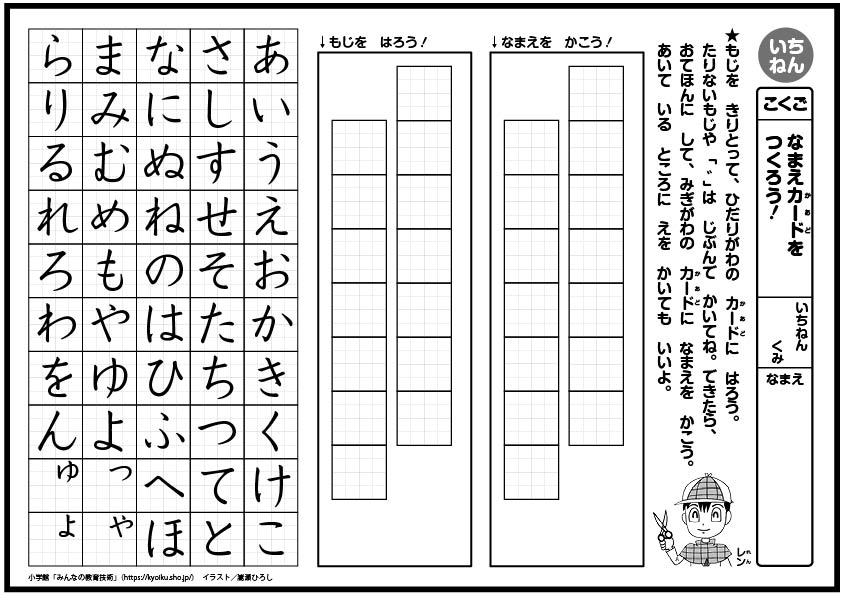 いち
ねん
こくご
なまえカードを
かあど
つくろう!
いちねん
くみ
なまえ
★もじを きりとって、ひだりがわの カードに はろう。
かあど
たりないもじや 「〝」は じぶんで かいてね。できたら、
おてほんに して、みぎがわの カードに なまえを かこう。
かあど
あいて いる ところに えを かいても いいよ。
レン
れん
↓なまえを かこう!
↓もじを はろう!
あいうえおかきくけこ
さしすせそたちつてと
なにぬねのはひふへほ
まみむめもやゆよっゃ
らりるれろわをんゅょ
小学館「みんなの教育技術」(https://kyoiku.sho.jp/) イラスト/瀧瀬ひろし